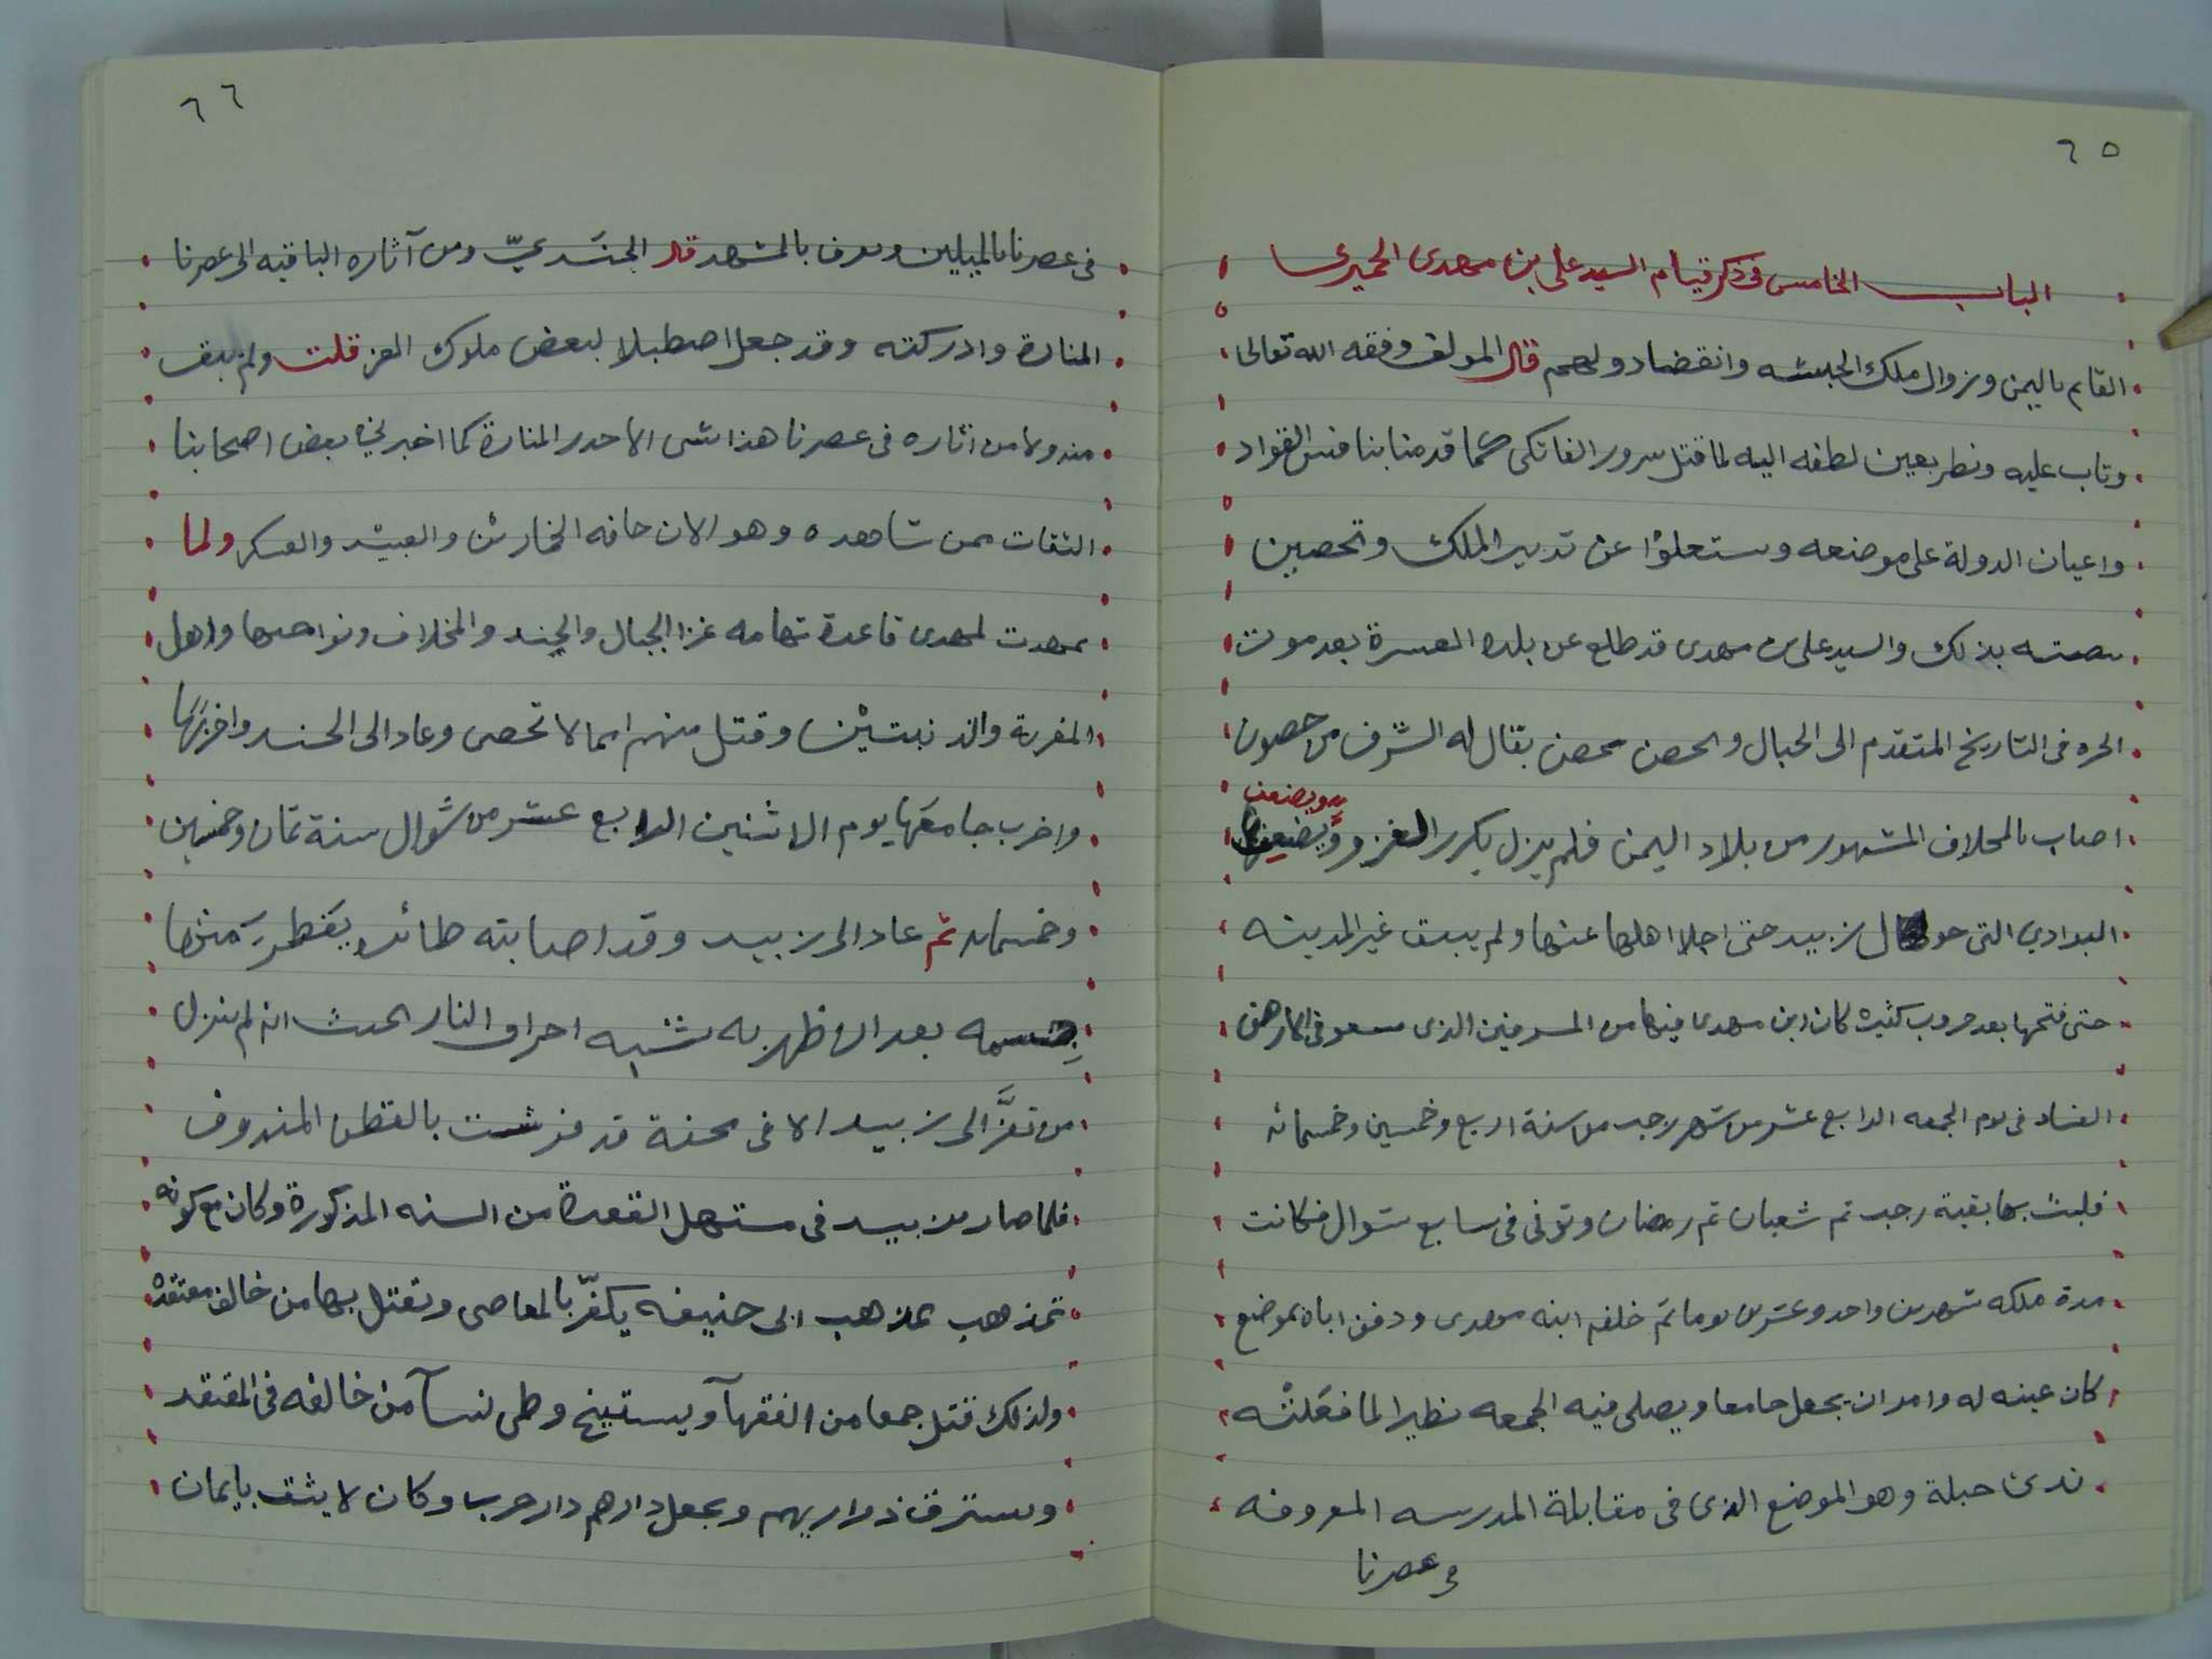 ٦٥
الباب الخامس فى ذكر قيام السيد على بن مهدى الحميرى
القايم باليمن وزوال ملك الحبشه وانقضا دولهم قال المولف وفقه الله تعالى
وتاب عليه ونظر بعين لطفه اليه لما قتل سرور الفاتكى كما قدمنا تنافس القواد
واعيان الدولة على موضعه وستعلوا عن تدبير الملك وتحصين
بذلك والسيد على بن مهدى قد طلع عن بلده العسرة بعد موت
الحره فى التاريخ المتقدم الى الجبال والحصن بحصن يقال له الشرف من حصون
اصاب بالمخلاف المشهور من بلاد اليمن فلم يزل يكرر الغزو ويضعف
البوادي التى حوال زبيد حتى اجلا اهلها عنها ولم يبق غير المدينه
حتى فتحها بعد حروب كثيره كان ابن مهدى فيها من المسرفين الذى سعو فى الارض
الفساد فى يوم الجمعه الرابع عشر من شهر رجب من سنة اربع وخمسين وخمسمائه
فلبث بها بقية رجب ثم شعبان ثم رمضان وتوفى فى سابع شوال فكانت
مدة ملكه شهرين واحد وعشرين يوما ثم خلفه ابنه مهدى ودفن اباه بموضع
كان عينه له وامر ان يجعل جامعا ويصلى فيه الجمعه نظيرا لما فعلته
بذى جبلة وهو الموضع الذى فى مقابلة المدرسه المعروفه
فى عصرنا
٦٦
فى عصرنا بالميلين ويعرف بالمشهد قال الجندي ومن آثاره الباقيه الى عصرنا
المنارة وادركته وقد جعل اصطبلا لبعض ملوك الغز قلت ولم يبق
منه ولا من اثاره فى عصرنا هذا شى الا جدر المنارة كما اخبرني بعض اصحابنا
الثقات ممن شاهده وهو الان حافه والعسكر ولما
تمهدت لمهدى قاعدة تهامه غزا الجبال والجند والمخلاف ونواحيها واهل
المغربة والذنبتين وقتل منهم امما لا تحصى وعاد الى الجند واخربها
واخرب جامعها يوم الاثنين الرابع عشر من شوال سنة ثمان وخمسين
وخمسمايه ثم عاد الى زبيد وقد اصابته يفطر منها
جسمه بعد ان ظهر به شبه احراق النار بحيث انه لم ينزل
من تعز الى زبيد الا فى محفة قد فرشت بالقطن المندوف
فلما صار من زبيد فى مستهل القعدة من السنه المذكورة وكان مع كونه
تمذهب بمذهب ابى حنيفه يكفر بالمعاصى ويقتل بها من خالف معتقده
ولذلك قتل جمعا من الفقهآ ويستبيح وطى نسآ من خالفه فى المعتقد
ويسترق ذراريهم ويجعل دارهم دار حرب وكان لا يثق بايمان